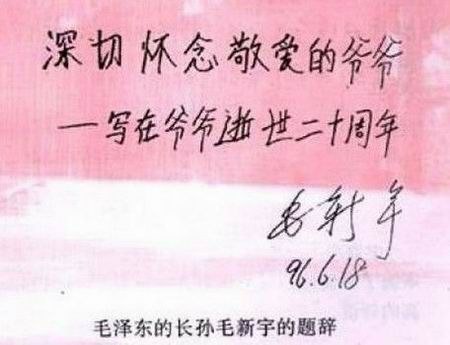 深切怀念敬爱的爷爷
—写在爷爷逝世二十周年
毛新宇
96.6.18
毛泽东的长孙毛新宇的题辞